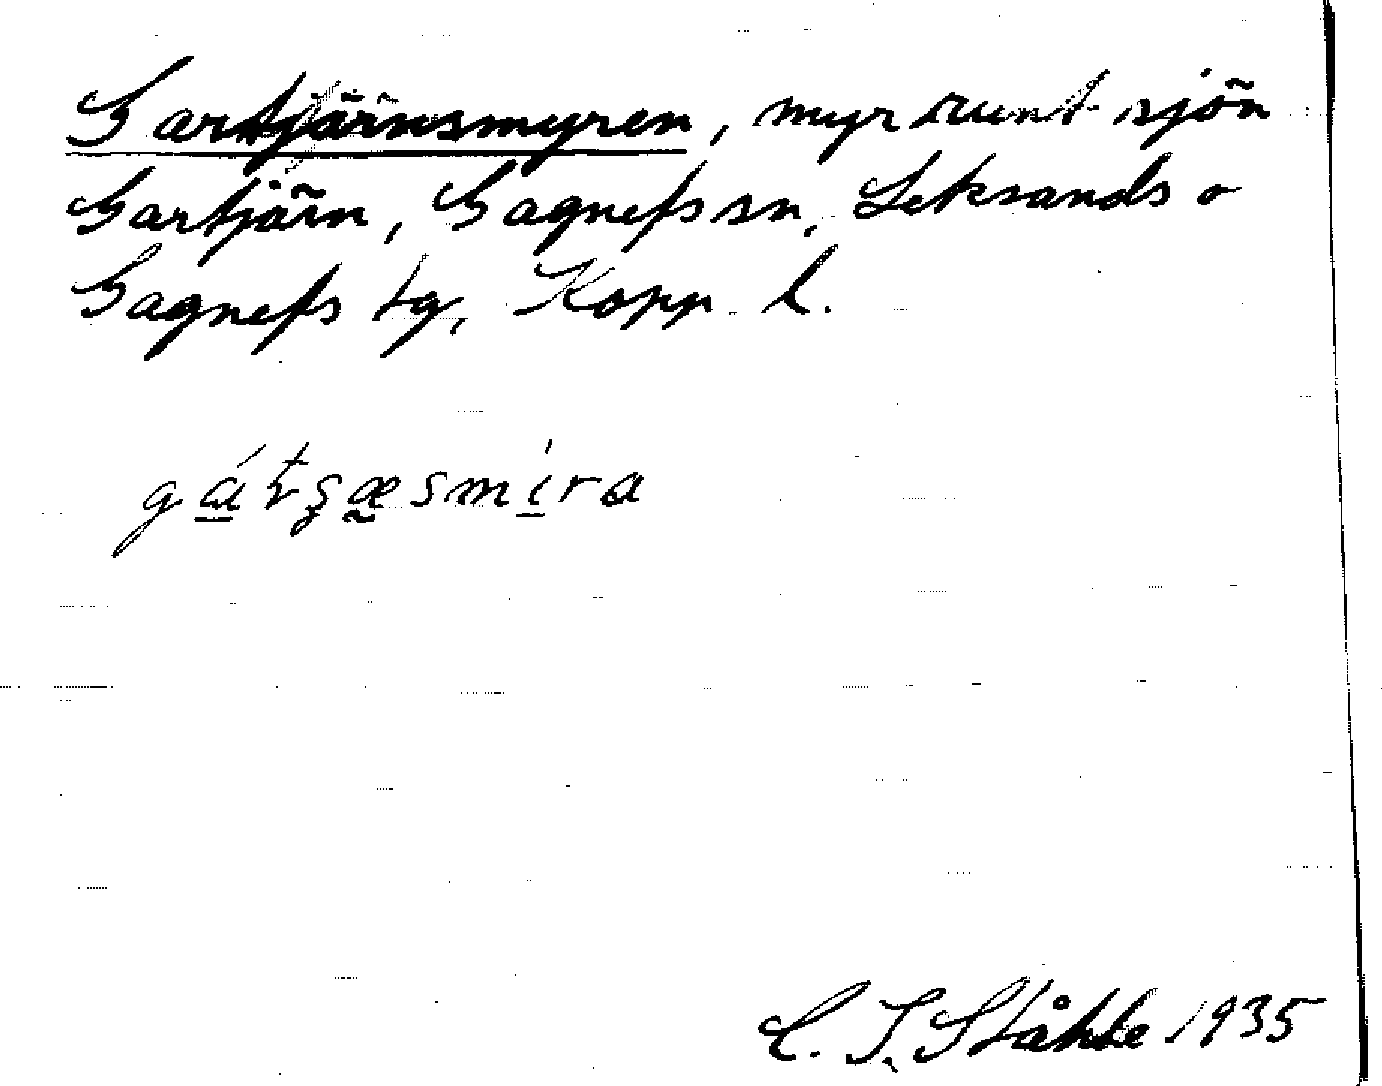 Gartjärnsmyren, myr runt sjön
Gartjärn, Gagnefs sn, Leksands o
Gagnefs tg, Kopp. l.
C. I. Ståhle 1935